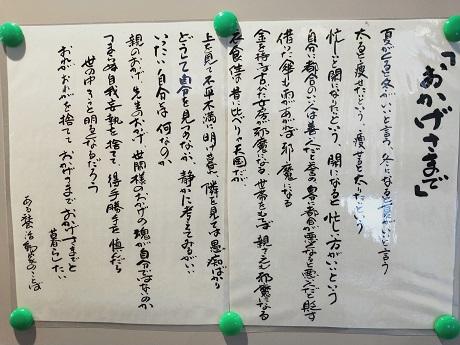 「おかげさまで」
夏がくると冬がいいと言う、冬になると夏がいいと言う
太ると痩せたいという、痩せると太りたいという
忙しいと閑になりたいという、閑になると忙しい方がいいという
自分に都合のいい人は善い人だと誉め
借りた傘も雨があがれば邪魔になる
金を持てば古びた女房が邪魔になる 世帯をもてば親さえも邪魔になる
衣食住は昔に比べりゃ天国だが
上を見て不平不満に明け暮れ 隣を見ては愚痴ばかり
どうして自分を見つめないか 静かに考えてみるがいい
いったい自分とは何なのか
親のおかげ 先生のおかげ 世間様のおかげの塊が自分ではないのか
つまらぬ自我妄執を捨てて 得手勝手を慎んだら
世の中きっと明るくなるだろう
おれがおれがを捨てて おかげさまで おかげさまでと
暮らしたい